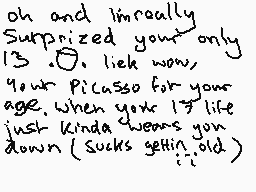 oh and i'mreally
Surprized your only
13 .O. liek wow,
your Picasso for your
age. when your 17 life
just kinda wears you
down (sucks gettin old)
;-;